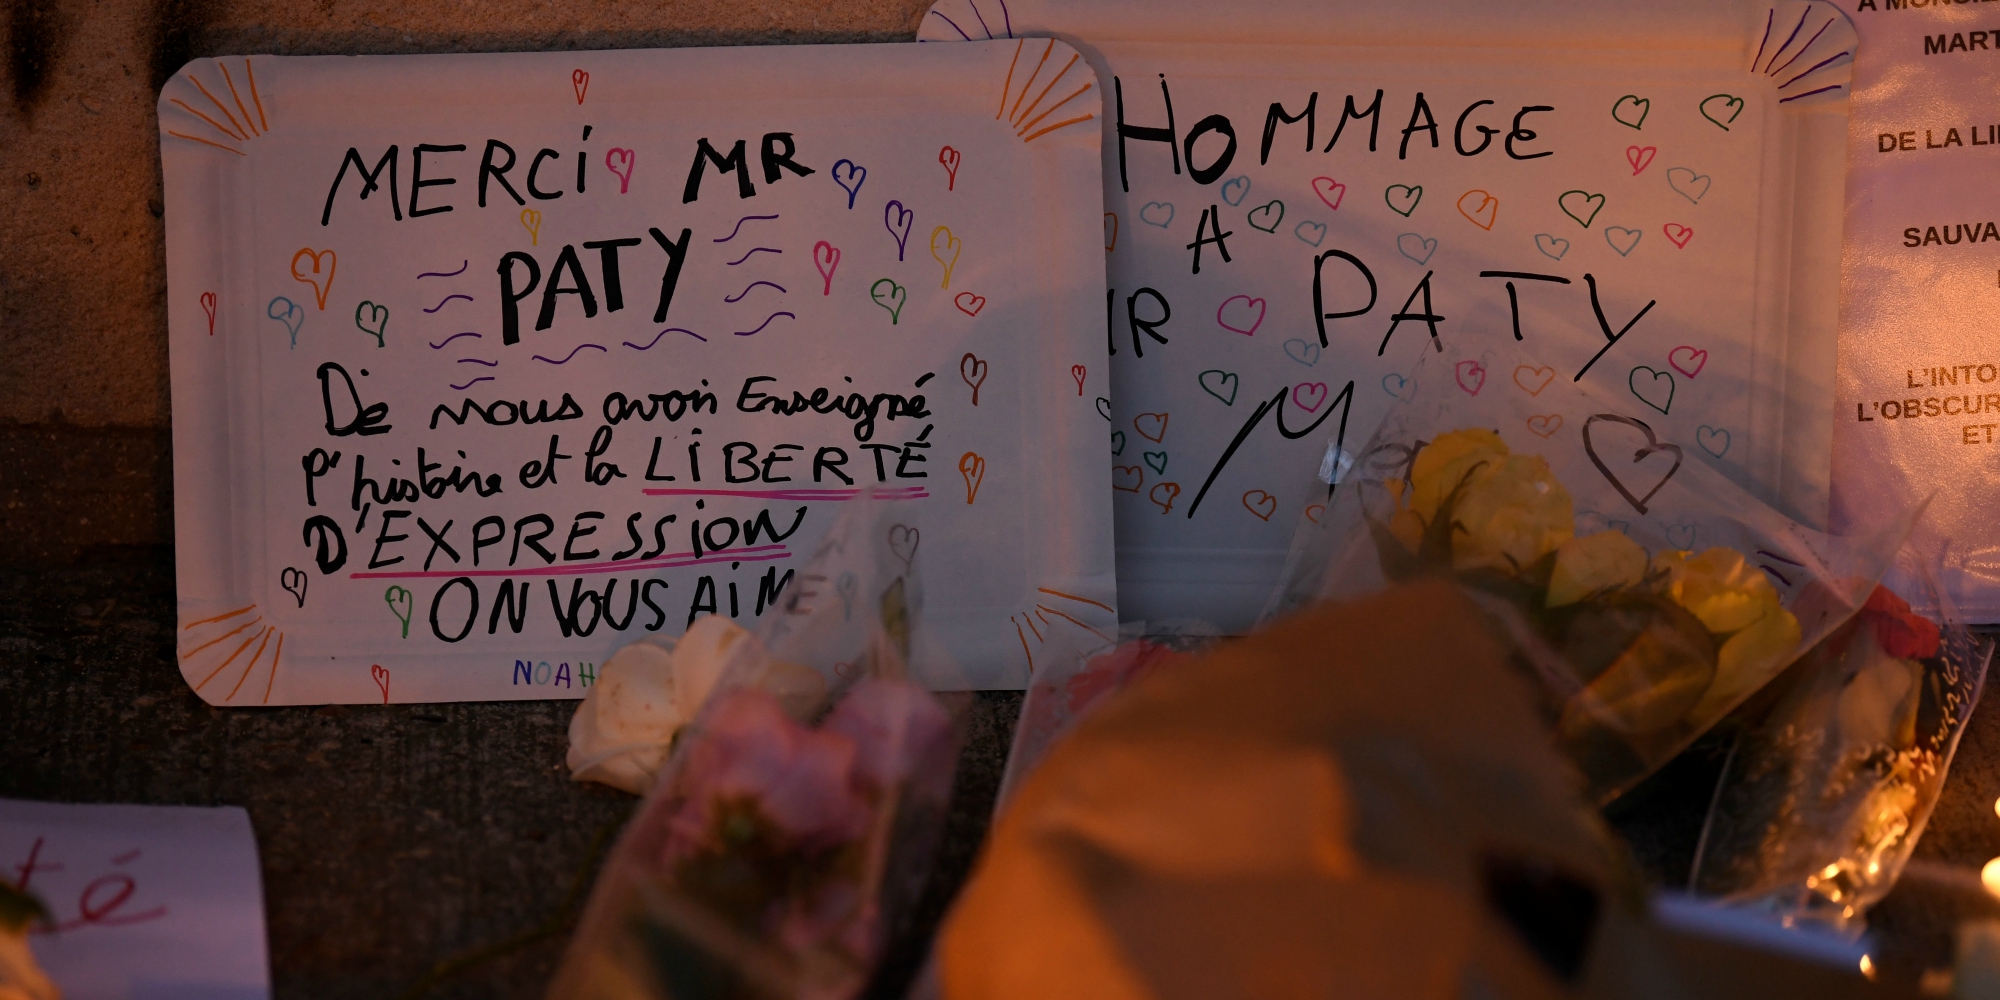 MERCI MR
PATY
De nous avoir Enseigné
l'histoire et la LIBERTÉ
D'EXPRESSION
ON VOUS AIME
NOAH
HOMMAGE
A
IR PATY
M
MART
DE LA LI
SAUVA
L'INTO
L'OBSCUR
ET
té